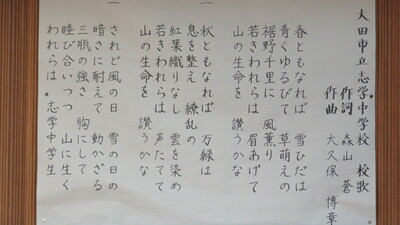 大田市立志学中学校 校歌
作詞 森山 蒼
作曲 大久保 博章
一
春ともなれば 雪ひだは
青くゆるびて 草萌えの
裾野千里に 風薫り
若きわれらは 眉あげて
山の生命を 讃うかな
一
秋ともなれば 万緑は
息を整え 繚乱の
紅葉織りなし 雲を染め
若きわれらは 声たてて
山の生命を 讃うかな
一
されど風の日 雪の日の
暗さに耐えて 動かざる
三瓶の強さ 胸にして
睦び合いつつ 山に生く
われらは 志学中学生